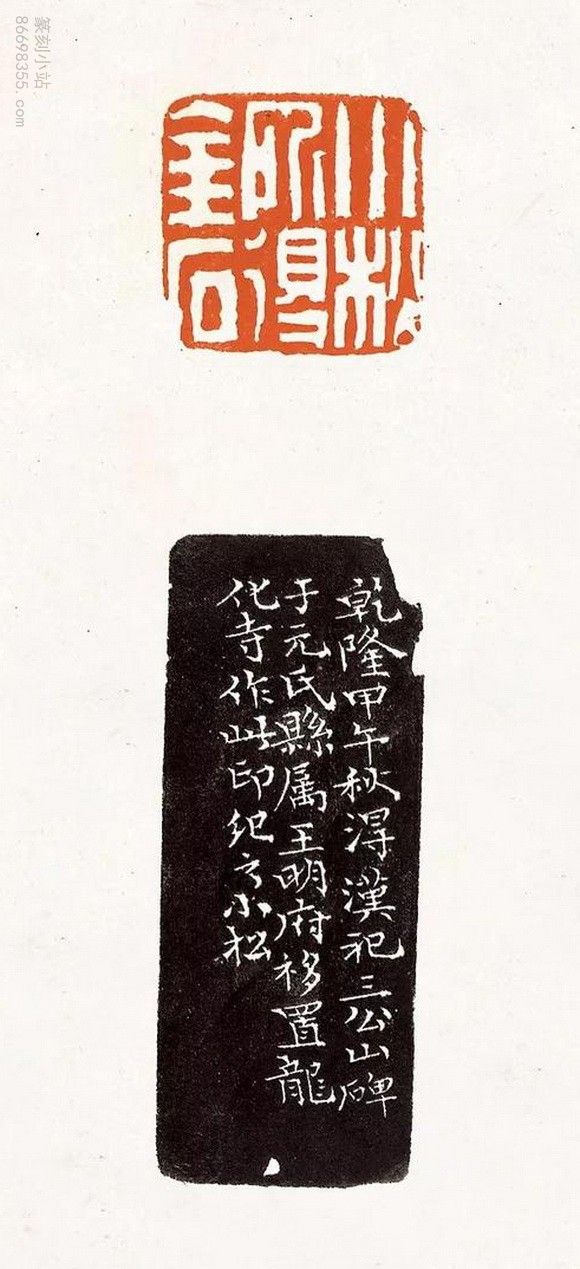 篆刻小站
86698355.com
小松
所得
金石
乾隆甲午秋淂漢祀三公山碑
于元氏縣属王明府移置龍
化寺作此印纪之小松